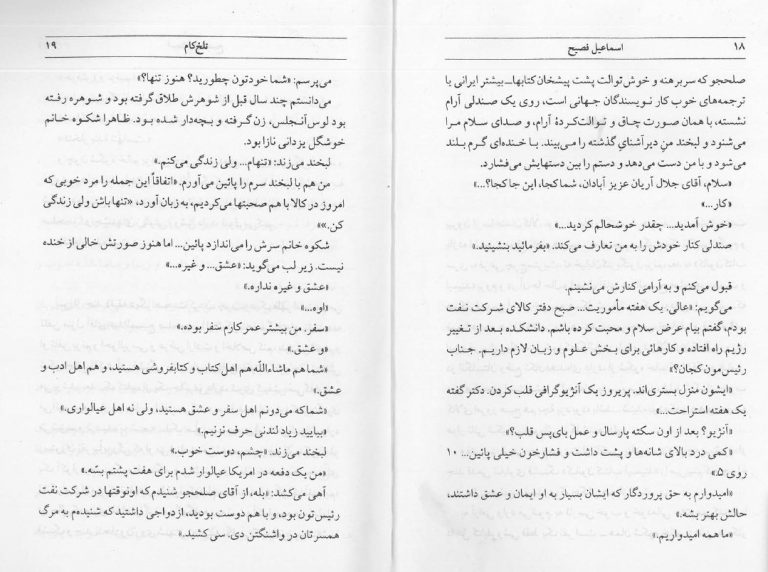 ۱۸
اسماعیل فصیح
صلحجو که سربرهنه و خوش‌توالت پشت پیشخان کتابها ــ بیشتر ایرانی با
ترجمه‌های خوب کار نویسندگان جهانی است، روی یک صندلی آرام
نشسته، با همان صورت چاق و توالت‌کردهٔ آرام، و صدای سلام مرا
می‌شنود و لبخند منِ دیرآشنای گذشته را می‌بیند. با خنده‌ای گرم بلند
می‌شود و با من دست می‌دهد و دستم را بین دستهایش می‌فشارد.
«سلام، آقای جلال آریان عزیز آبادان، شما کجا، این جا کجا؟...»
«کار...»
«خوش آمدید... چقدر خوشحالم کردید...»
صندلی کنار خودش را به من تعارف می‌کند. «بفرمائید بنشینید.»
قبول می‌کنم و به آرامی کنارش می‌نشینم.
می‌گویم: «عالی. یک هفته مأموریت... صبح دفتر کالای شرکت نفت
بودم، گفتم بیام عرض سلام و محبت کرده باشم. دانشکده بعد از تغییر
رژیم راه افتاده و کارهائی برای بخش علوم و زبان لازم داریم. جناب
رئیس‌مون کجان؟»
«ایشون منزل بستری‌اند. پریروز یک آنژیوگرافی قلب کردن. دکتر گفته
یک هفته استراحت...»
«آنژیو؟ بعد از اون سکته پارسال و عمل بای‌پس قلب؟»
«کمی درد بالای شانه‌ها و پشت داشت و فشارخون خیلی پائین... ۱۰
روی ۵.»
«امیدوارم به حق پروردگار که ایشان بسیار به او ایمان و عشق داشتند،
حالش بهتر بشه.»
«ما همه امیدواریم.»
تلخ‌کام
۱۹
می‌پرسم: «شما خودتون چطورید؟ هنوز تنها؟»
می‌دانستم چند سال قبل از شوهرش طلاق گرفته بود و شوهره رفته
بود لوس‌آنجلس، زن گرفته و بچه‌دار شده بود. ظاهرا شکوه خانم
خوشگل یزدانی نازا بود.
لبخند می‌زند: «تنهام... ولی زندگی می‌کنم.»
من هم با لبخند سرم را پائین می‌آورم. «اتفاقاً این جمله را مرد خوبی که
امروز در کالا با هم صحبتها می‌کردیم، به زبان آورد، «تنها باش ولی زندگی
کن.»»
شکوه خانم سرش را می‌اندازد پائین... اما هنوز صورتش خالی از خنده
نیست. زیر لب می‌گوید: «عشق... و غیره...»
«عشق و غیره نداره.»
«اوه...»
«سفر. من بیشتر عمر کارم سفر بوده.»
«و عشق.»
«شما هم ماشاءالله هم اهل کتاب و کتابفروشی هستید، و هم اهل ادب و
عشق.»
«شما که می‌دونم اهل سفر و عشق هستید، ولی نه اهل عیالواری.»
«بیایید زیاد لندنی حرف نزنیم.»
لبخند می‌زند. «چشم، دوست خوب.»
«من یک دفعه در امریکا عیالوار شدم برای هفت پشتم بسّه.»
آهی می‌کشد: «بله، از آقای صلحجو شنیدم که اونوقتها در شرکت نفت
رئیس‌تون بود، و با هم دوست بودید، ازدواجی داشتید که شنیدم به مرگ
همسرتان در واشنگتن دی. سی کشید.»